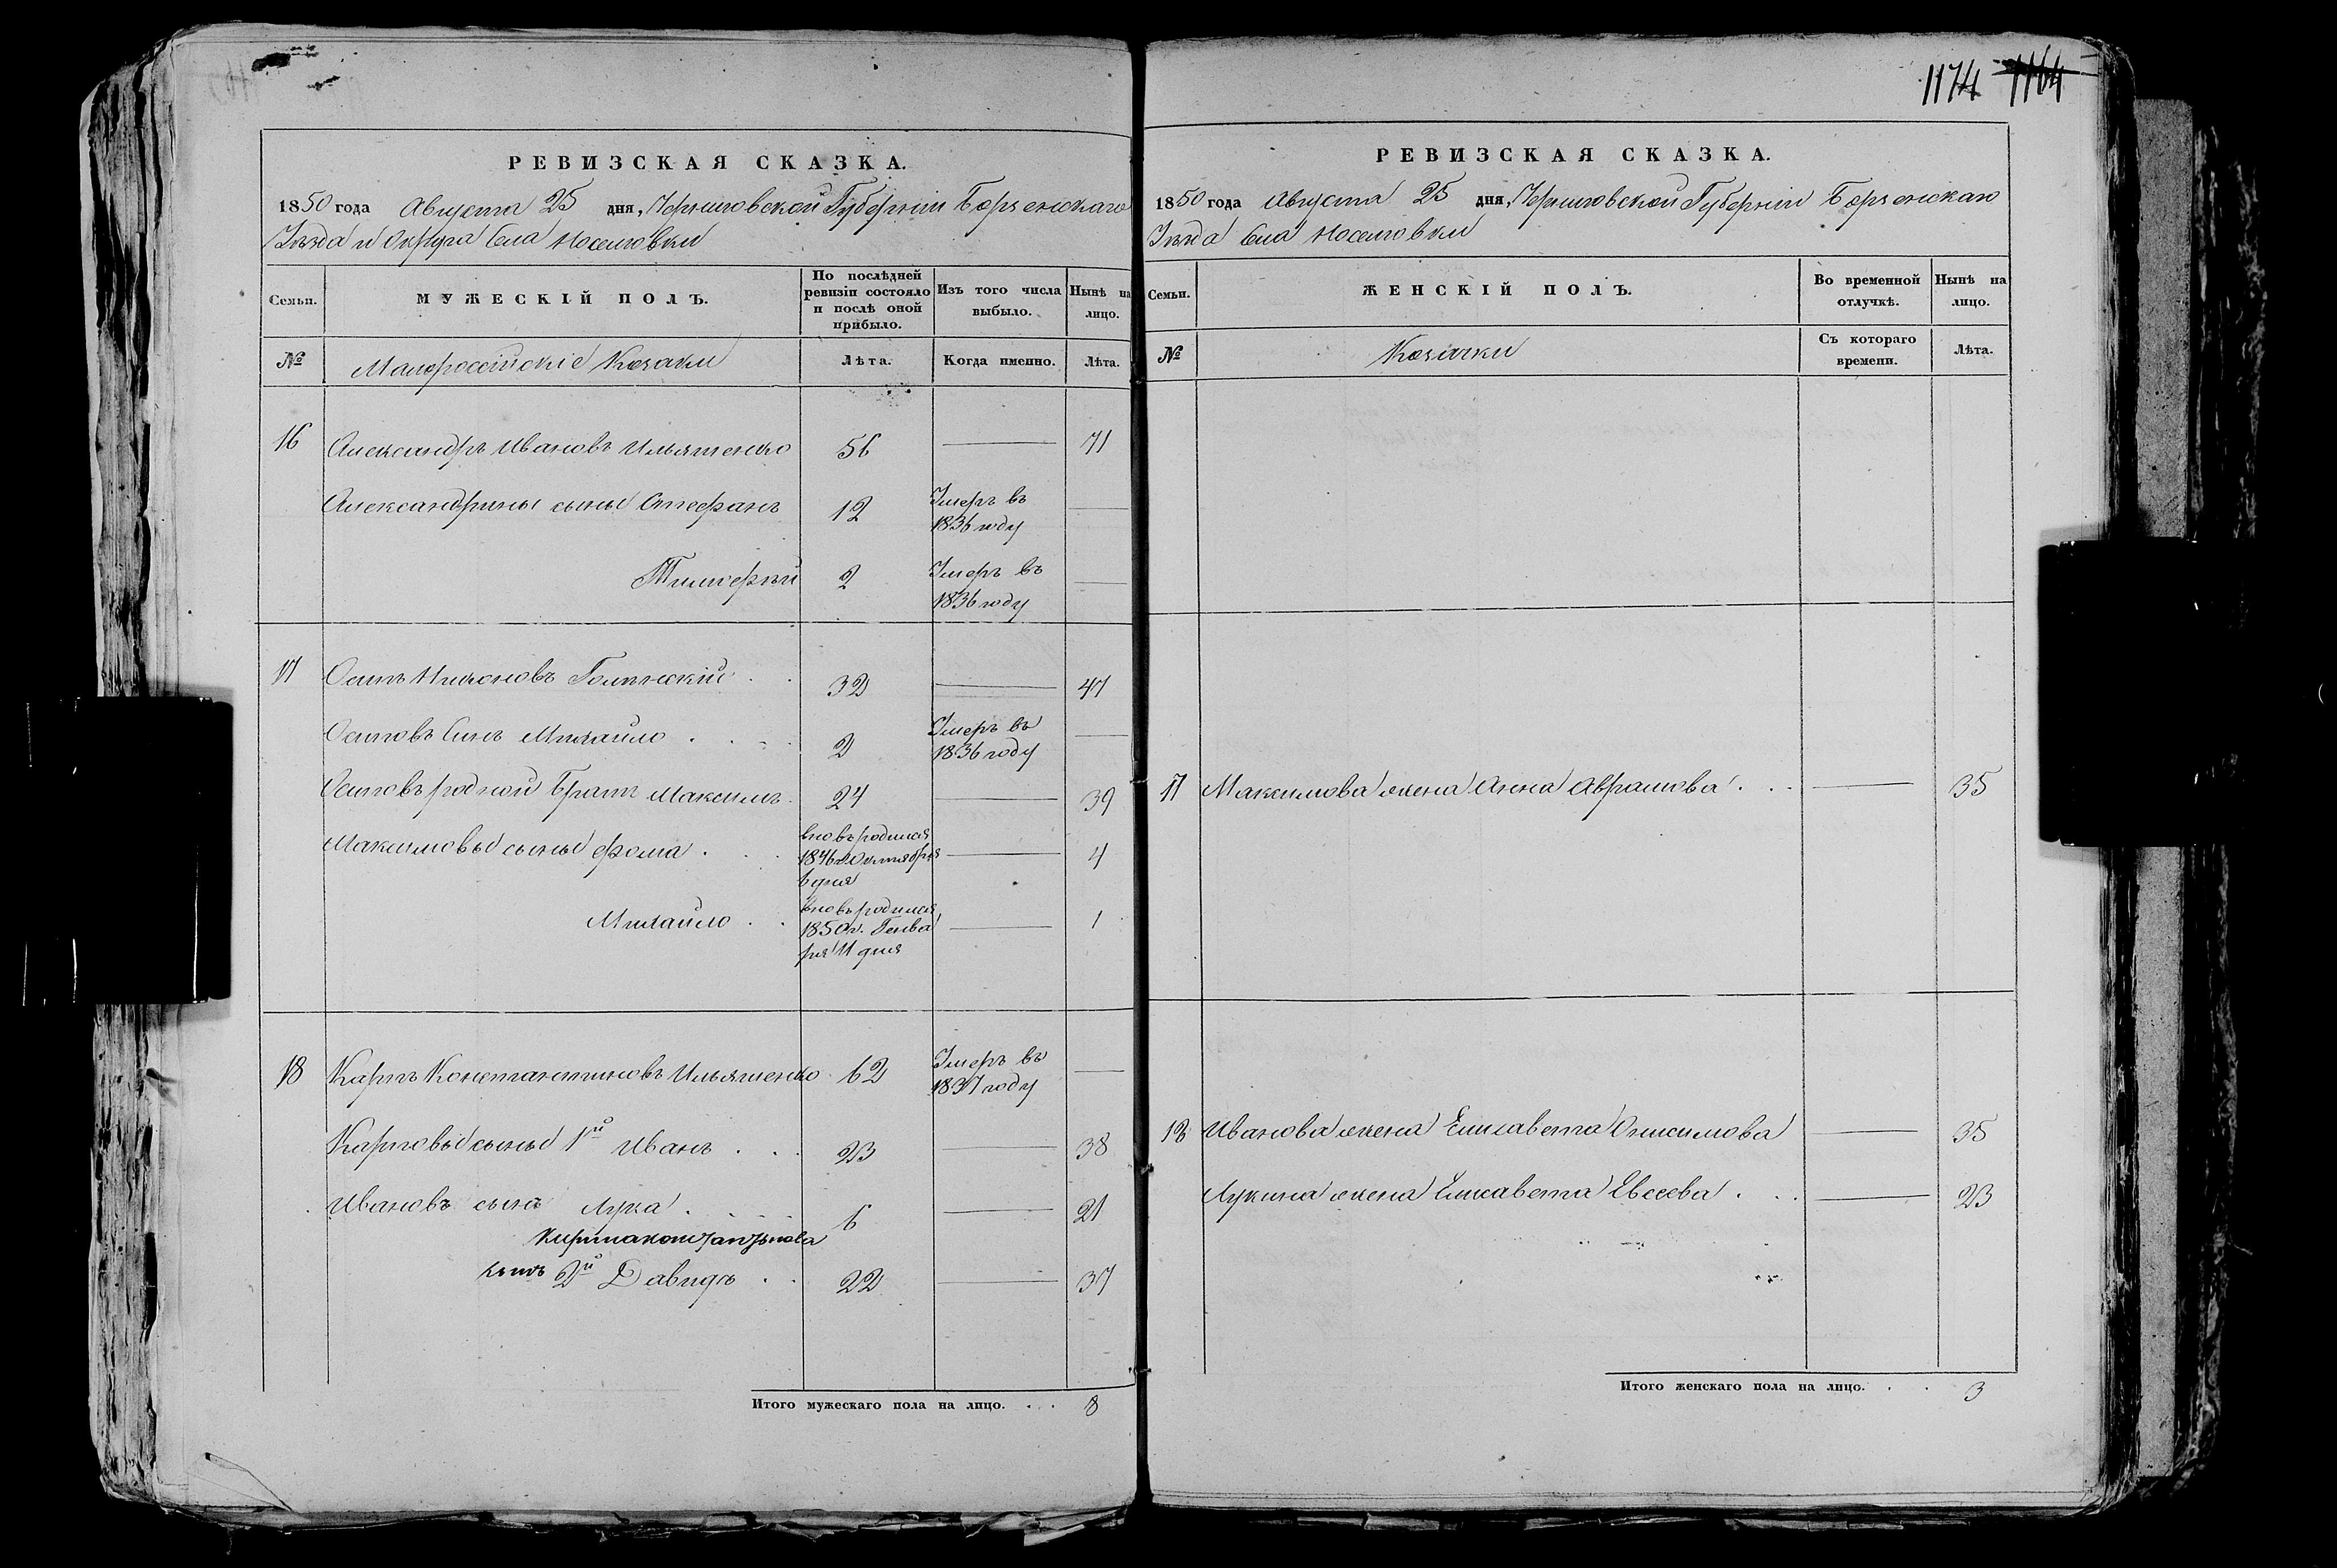 1174 1164
РЕВИЗСКАЯ СКАЗКА.
1850 года Августа 25 дня, Черниговской Губерніи Борзенскаго
Уѣзда и Округа Села Носеловки
Семьи.
МУЖЕСКІЙ ПОЛЪ.
По послѣдней ревизіи состояло и послѣ оной прибыло.
Изъ того числа выбыло.
Нынѣ на лицо.
№
Малороссійскіе Козаки
Лѣта.
Когда именно.
Лѣта.
16 Александръ Ивановъ Ильяшенко 56 — 71
Александрины сыны Стефанъ 12 Умеръ въ 1836 году —
Тимофей 2 Умеръ въ 1836 году —
17 Осипъ Никоновъ 32 — 47
Осиповъ Сынъ Михайло 2 Умеръ въ 1836 году —
Осиповъ родной Братъ Максимъ 24 — 39
Максимовы сыны Фома . вновь родился 1846 г. Октября 6 дня — 4
Михайло . . вновь родился 1850 г. Генваря 11 дня — 1
18 Карпъ Константиновъ Ильяшенко 62 Умеръ въ 1837 году —
Карповы сыны 1й Иванъ . . . 23 — 38
Ивановъ сынъ Лука . 6 — 21
сынъ 2й Давидъ . . 22 — 37
Итого мужескаго пола на лицо. . . 8
РЕВИЗСКАЯ СКАЗКА.
1850 года Августа 25 дня, Черниговской Губерніи Борзенскаго
Уѣзда Села Носеловки
Семьи.
ЖЕНСКІЙ ПОЛЪ.
Во временной отлучкѣ.
Нынѣ на лицо.
№
Козачки
Съ котораго времени.
Лѣта.
17 Максимова жена Анна Аврамова . . . — 35
18 Иванова жена Елисавета Онисимова — 35
Лукина жена Елисавета Евсеева . . . — 23
Итого женскаго пола на лицо. . . 3